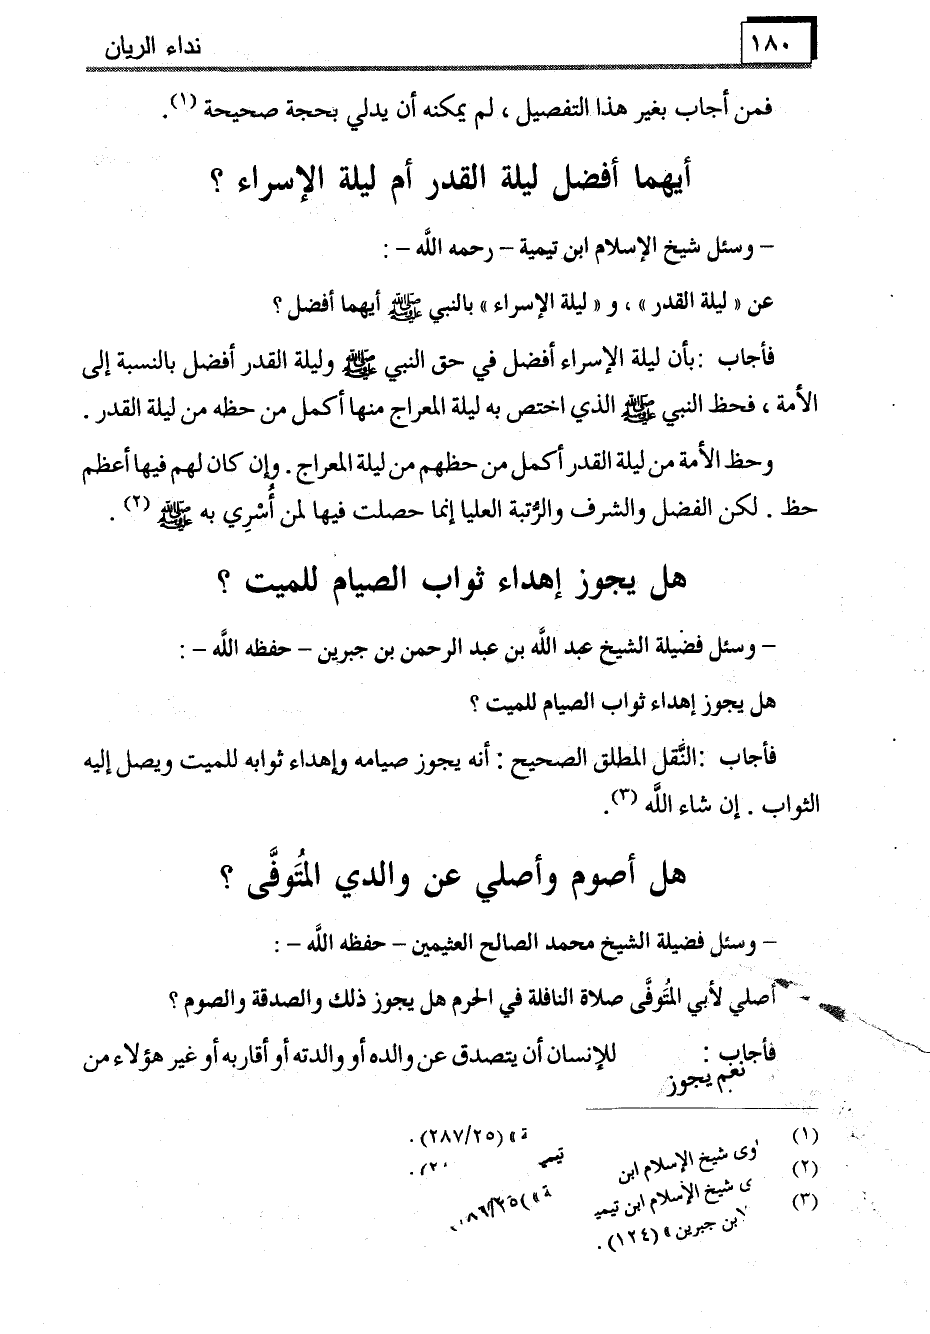 ١٨٠
نداء الريان
فمن أجاب بغير هذا التفصيل ، لم يمكنه أن يدلي بحجة صحيحة (١).
أيهما أفضل ليلة القدر أم ليلة الإسراء ؟
– وسئل شيخ الإسلام ابن تيمية – رحمه اللَّه – :
عن « ليلة القدر » ، و « ليلة الإسراء » بالنبي ﷺ أيهما أفضل ؟
فأجاب : بأن ليلة الإسراء أفضل في حق النبي ﷺ وليلة القدر أفضل بالنسبة إلى
الأمة ، فحظ النبي ﷺ الذي اختص به ليلة المعراج منها أكمل من حظه من ليلة القدر .
وحظ الأمة من ليلة القدر أكمل من حظهم من ليلة المعراج . وإن كان لهم فيها أعظم
حظ . لكن الفضل والشرف والرُّتبة العليا إنما حصلت فيها لمن أُسْرِي به ﷺ (٢) .
هل يجوز إهداء ثواب الصيام للميت ؟
– وسئل فضيلة الشيخ عبد اللَّه بن عبد الرحمن بن جبرين – حفظه اللَّه – :
هل يجوز إهداء ثواب الصيام للميت ؟
فأجاب : النَّفل المطلق الصحيح : أنه يجوز صيامه وإهداء ثوابه للميت ويصل إليه
الثواب . إن شاء اللَّه (٣).
هل أصوم وأصلي عن والدي المُتَوفَّى ؟
– وسئل فضيلة الشيخ محمد الصالح العثيمين – حفظه اللَّه – :
أصلي لأبي المُتَوفَّى صلاة النافلة في الحرم هل يجوز ذلك والصدقة والصوم ؟
فأجاب : نعم يجوز للإنسان أن يتصدق عن والده أو والدته أو أقاربه أو غير هؤلاء من
(١) وى شيخ الإسلام ابن تيمية » (٢٨٧/٢٥) .
(٢) ى شيخ الإسلام ابن تيمية » (٢٨٦/٢٥) .
(٣) ابن جبرين » (١٢٤) .